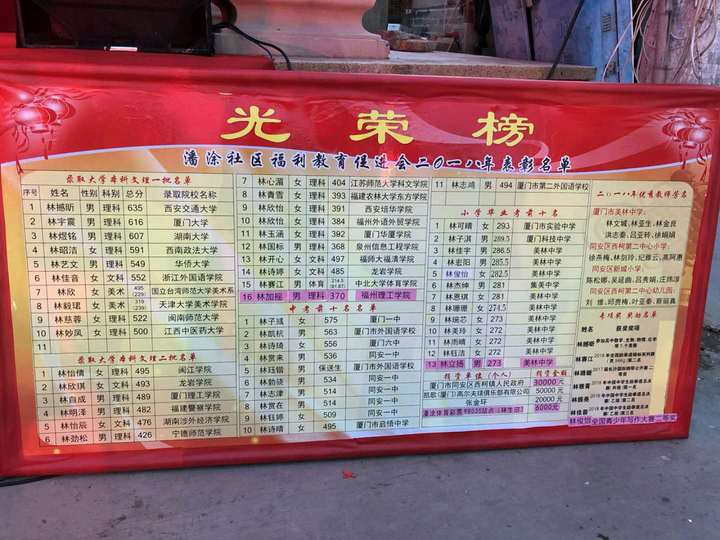 光荣榜
潘涂社区福利教育促进会二〇一八年表彰名单
录取大学本科文理一批名单
序号 姓名 性别 科别 总分 录取院校名称
1 林撼昕 男 理科 635 西安交通大学
2 林宇震 男 理科 616 厦门大学
3 林煜铭 男 理科 607 湖南大学
4 林昭洁 女 理科 591 西南政法大学
5 林艺文 男 理科 549 华侨大学
6 林佳音 女 文科 552 浙江外国语学院
7 林欣 女 美术 495 国立台湾师范大学美术系
8 林毅珺 女 美术 319 天津大学美术学院
9 林慈蓉 女 理科 522 闽南师范大学
10 林妙凤 女 理科 500 江西中医药大学
11
录取大学本科文理二批名单
1 林怡倩 女 理科 495 闽江学院
2 林欣琪 女 文科 493 龙岩学院
3 林自成 男 理科 489 厦门理工学院
4 林明泽 男 理科 482 福建警察学院
5 林怡辰 女 文科 476 湖南涉外经济学院
6 林劲松 男 理科 426 宁德师范学院
7 林心湄 女 理科 404 江苏师范大学科文学院
8 林青雪 女 理科 393 福建农林大学东方学院
9 林欣怡 女 理科 395 西安培华学院
10 林欣欣 女 理科 384 福州外语外贸学院
11 林玉涵 女 理科 392 厦门华厦学院
12 林国标 男 理科 368 泉州信息工程学院
13 林开心 女 文科 497 福师大福清学院
14 林诗婷 女 文科 485 龙岩学院
15 林赛江 男 体育 中北大学体育学院
16 林加捤 男 理科 370 福州理工学院
中考前十名名单
1 林子彧 女 575 厦门一中
2 林凯杭 男 563 厦门市外国语学校
3 林诗玹 女 556 厦门六中
4 林赏来 男 536 同安一中
5 林珏锴 男 保送生 厦门市外国语学校
6 林勃骁 男 534 同安一中
7 林志津 男 514 同安一中
8 林赏在 男 514 同安一中
9 林钰婷 女 509 同安一中
10 林诗晴 女 475 厦门市启悟中学
11 林志鸿 男 494 厦门市第二外国语学校
小学毕业考前十名
1 林可晴 女 293 厦门市实验中学
2 林子淇 男 289.5 厦门科技中学
3 林佳宇 男 286.5 美林中学
4 林宏阳 男 285.5 美林中学
5 林俊怡 女 282.5 美林中学
6 林杰绅 男 281 集美中学
7 林恩琪 女 281 美林中学
8 林珊珊 女 274.5 美林中学
9 林琬宁 女 273 美林中学
10 林美玲 女 273 美林中学
11 林雨晴 女 273 美林中学
12 林钰洁 女 273 美林中学
13 林立扬 男 273 美林中学
捐资单位(个人) 捐资金额
厦门市同安区西柯镇人民政府 30000元
凯歌(厦门)高尔夫球俱乐部有限公司 50000元
张金环 20000元
潘涂体育彩票98035站点(林生团) 6000元
二〇一八年优秀教师芳名
厦门市美林中学:
林文城、林亚生、林金良
洪志秦、吕亚祥、徐福娟
同安区西柯第二中心小学:
徐燕梅、林剑玲、纪雅云、高阿惠
同安区新城小学:
陈松娜、吴延曲、吕秀娟、庄玮淳
同安区西柯第二中心幼儿园:
刘维、邱青梅、叶雯、蔡丽真
专项奖奖励名单
姓名 获奖奖项
林俊怡全国青少年写作大赛二等奖